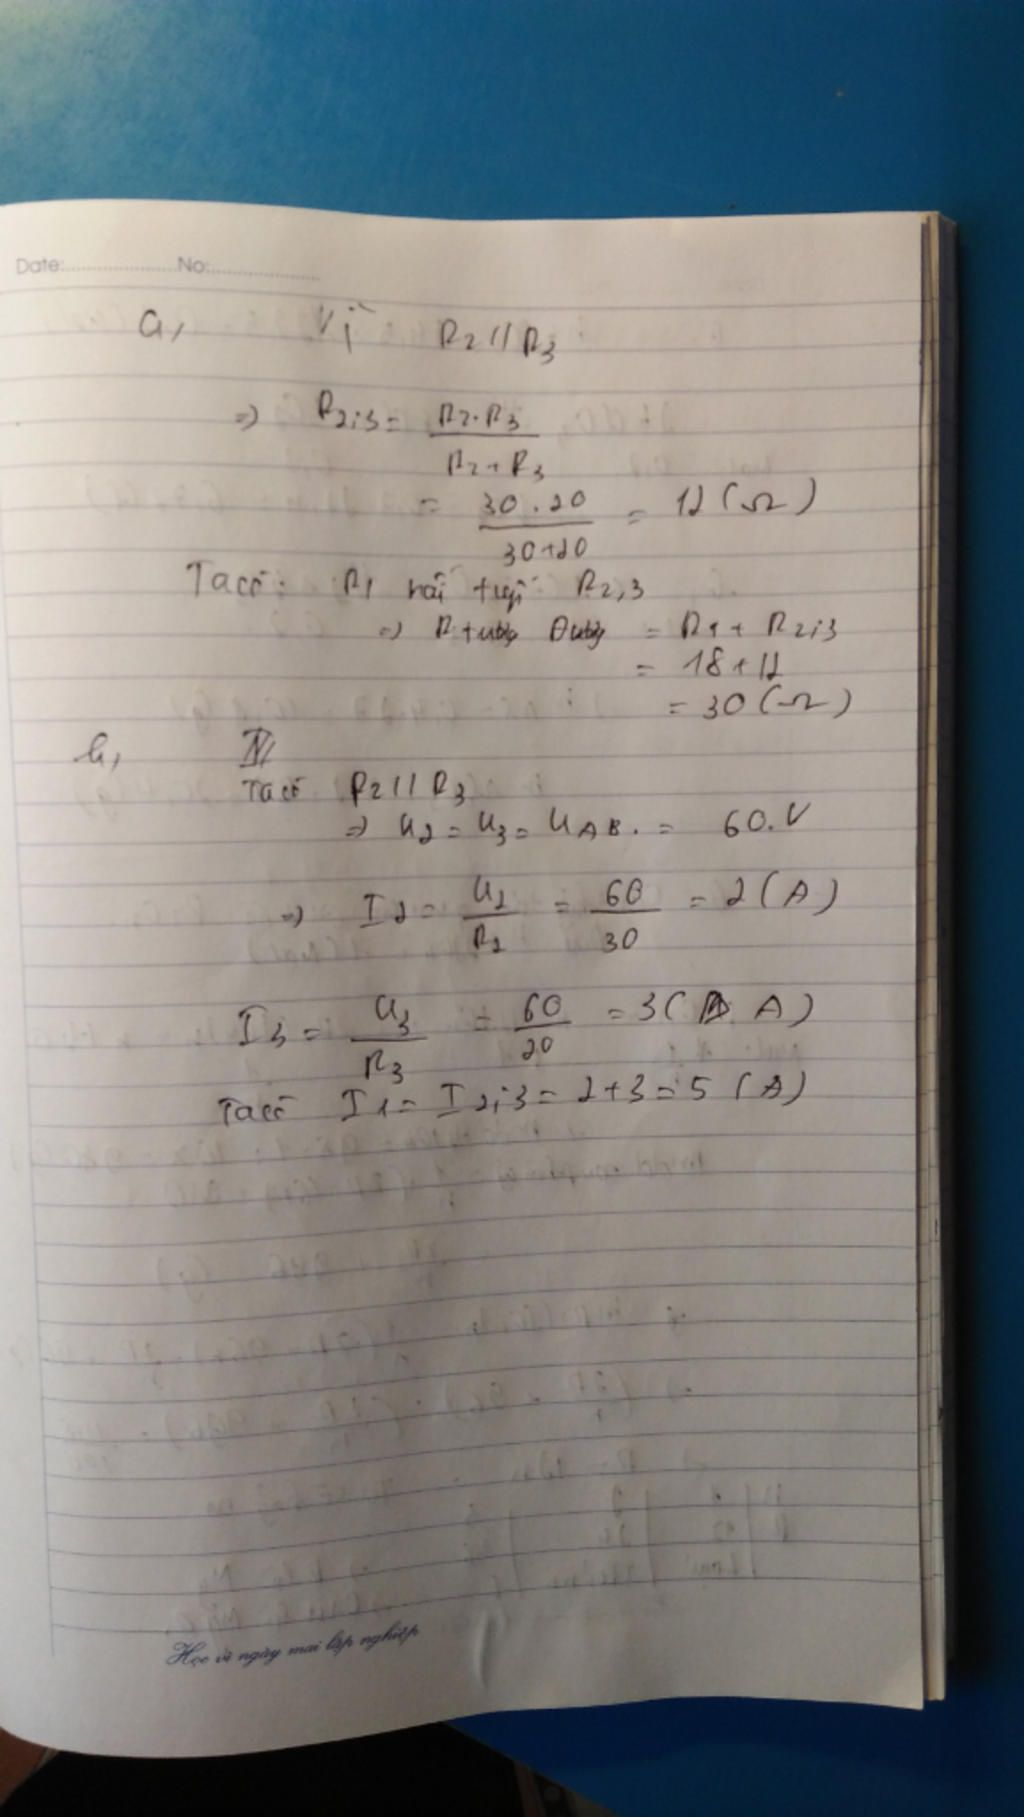 Date: No:
a, Vì R2 // R3
=) R2;3 = R2.R3 / R2+R3
= 30.20 / 30+20 = 12 (Ω)
Ta có: R1 nối tiếp R2,3
=) R tương đương = R1 + R2;3
= 18 + 12
= 30 (Ω)
b,
Ta có R2 // R3
=) U2 = U3 = UAB. = 60.V
=) I2 = U2 / R2 = 60 / 30 = 2 (A)
I3 = U3 / R3 = 60 / 20 = 3 ( A)
Ta có I1 = I2;3 = 2+3 = 5 (A)
Học vì ngày mai lập nghiệp